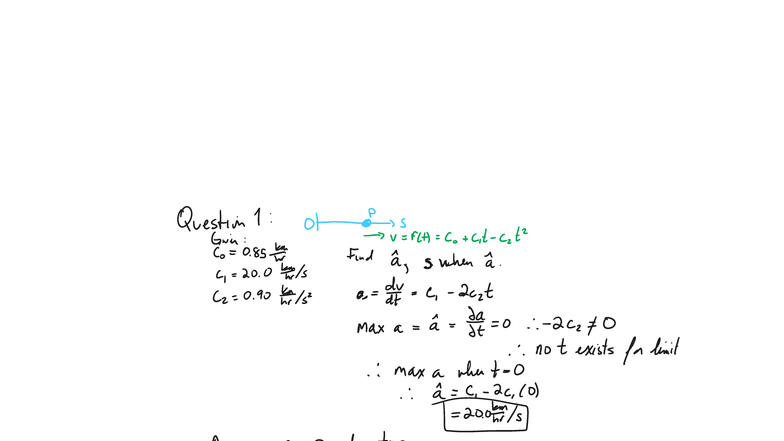 Question 1:
O P S
→ v = f(t) = C₀ + C₁t - C₂t²
Given:
C₀ = 0.85 km/hr
C₁ = 20.0 km/hr/s
C₂ = 0.90 km/hr/s²
Find â, s when â.
a = dv/dt = C₁ - 2C₂t
max a = â = ∂a/∂t = 0 ∴ -2C₂ ≠ 0
∴ no t exists for limit
∴ max a when t=0
∴ â = C₁ - 2C₁(0)
= 20.0 km/hr/s